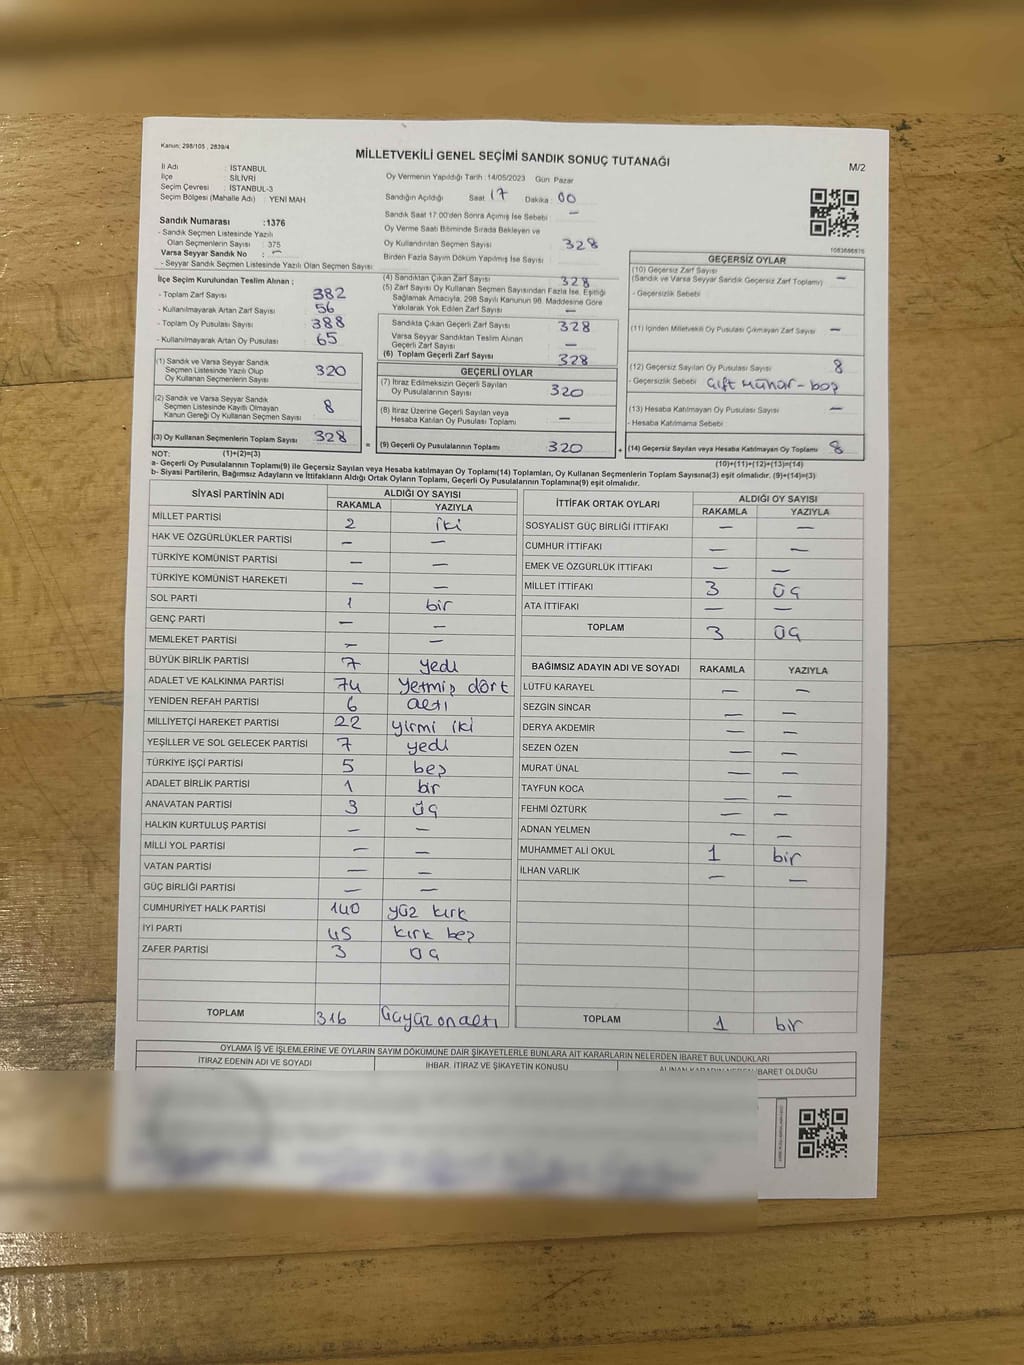 Kanun: 298/105 , 2839/4
MİLLETVEKİLİ GENEL SEÇİMİ SANDIK SONUÇ TUTANAĞI
M/2
İl Adı : İSTANBUL
İlçe : SİLİVRİ
Seçim Çevresi : İSTANBUL-3
Seçim Bölgesi (Mahalle Adı) : YENİ MAH
Oy Vermenin Yapıldığı Tarih : 14/05/2023 Gün: Pazar
Sandığın Açıldığı Saat 17 Dakika 00
Sandık Saat 17:00'den Sonra Açılmış İse Sebebi —
Oy Verme Saati Bitiminde Sırada Bekleyen ve
Oy Kullandırılan Seçmen Sayısı 328
Birden Fazla Sayım Döküm Yapılmış İse Sayısı
Sandık Numarası :1376
- Sandık Seçmen Listesinde Yazılı
Olan Seçmenlerin Sayısı : 375
Varsa Seyyar Sandık No : —
- Seyyar Sandık Seçmen Listesinde Yazılı Olan Seçmen Sayısı:
İlçe Seçim Kurulundan Teslim Alınan ;
- Toplam Zarf Sayısı 382
- Kullanılmayarak Artan Zarf Sayısı 56
- Toplam Oy Pusulası Sayısı 388
- Kullanılmayarak Artan Oy Pusulası 65
(1) Sandık ve Varsa Seyyar Sandık
Seçmen Listesinde Yazılı Olup
Oy Kullanan Seçmenlerin Sayısı 320
(2) Sandık ve Varsa Seyyar Sandık
Seçmen Listesinde Kayıtlı Olmayan
Kanun Gereği Oy Kullanan Seçmen Sayısı 8
(3) Oy Kullanan Seçmenlerin Toplam Sayısı 328
(4) Sandıktan Çıkan Zarf Sayısı 328
(5) Zarf Sayısı Oy Kullanan Seçmen Sayısından Fazla İse, Eşitliği
Sağlamak Amacıyla, 298 Sayılı Kanunun 98. Maddesine Göre
Yakılarak Yok Edilen Zarf Sayısı —
Sandıkta Çıkan Geçerli Zarf Sayısı 328
Varsa Seyyar Sandıktan Teslim Alınan
Geçerli Zarf Sayısı —
(6) Toplam Geçerli Zarf Sayısı 328
GEÇERLİ OYLAR
(7) İtiraz Edilmeksizin Geçerli Sayılan
Oy Pusulalarının Toplamı 320
(8) İtiraz Üzerine Geçerli Sayılan veya
Hesaba Katılan Oy Pusulası Toplamı —
= (9) Geçerli Oy Pusulalarının Toplamı 320
GEÇERSİZ OYLAR
(10) Geçersiz Zarf Sayısı
(Sandık ve Varsa Seyyar Sandık Geçersiz Zarf Toplamı) —
- Geçersizlik Sebebi
(11) İçinden Milletvekili Oy Pusulası Çıkmayan Zarf Sayısı —
(12) Geçersiz Sayılan Oy Pusulası Sayısı 8
- Geçersizlik Sebebi Çift mühür - boş
(13) Hesaba Katılmayan Oy Pusulası Sayısı —
- Hesaba Katılmama Sebebi
+ (14) Geçersiz Sayılan veya Hesaba Katılmayan Oy Toplamı 8
NOT: (1)+(2)=(3) (10)+(11)+(12)+(13)=(14)
a- Geçerli Oy Pusulalarının Toplamı(9) ile Geçersiz Sayılan veya Hesaba katılmayan Oy Toplamı(14) Toplamları, Oy Kullanan Seçmenlerin Toplam Sayısına(3) eşit olmalıdır. (9)+(14)=(3)
b- Siyasi Partilerin, Bağımsız Adayların ve İttifakların Aldığı Ortak Oyların Toplamı, Geçerli Oy Pusulalarının Toplamına(9) eşit olmalıdır.
SİYASİ PARTİNİN ADI ALDIĞI OY SAYISI
RAKAMLA YAZIYLA
MİLLET PARTİSİ 2 iki
HAK VE ÖZGÜRLÜKLER PARTİSİ — —
TÜRKİYE KOMÜNİST PARTİSİ — —
TÜRKİYE KOMÜNİST HAREKETİ — —
SOL PARTİ 1 bir
GENÇ PARTİ — —
MEMLEKET PARTİSİ — —
BÜYÜK BİRLİK PARTİSİ 7 yedi
ADALET VE KALKINMA PARTİSİ 74 yetmiş dört
YENİDEN REFAH PARTİSİ 6 altı
MİLLİYETÇİ HAREKET PARTİSİ 22 yirmi iki
YEŞİLLER VE SOL GELECEK PARTİSİ 7 yedi
TÜRKİYE İŞÇİ PARTİSİ 5 beş
ADALET BİRLİK PARTİSİ 1 bir
ANAVATAN PARTİSİ 3 üç
HALKIN KURTULUŞ PARTİSİ — —
MİLLİ YOL PARTİSİ — —
VATAN PARTİSİ — —
GÜÇ BİRLİĞİ PARTİSİ — —
CUMHURİYET HALK PARTİSİ 140 yüz kırk
İYİ PARTİ 45 kırk beş
ZAFER PARTİSİ 3 üç
TOPLAM 316 üçyüz onaltı
İTTİFAK ORTAK OYLARI ALDIĞI OY SAYISI
RAKAMLA YAZIYLA
SOSYALİST GÜÇ BİRLİĞİ İTTİFAKI — —
CUMHUR İTTİFAKI — —
EMEK VE ÖZGÜRLÜK İTTİFAKI — —
MİLLET İTTİFAKI 3 üç
ATA İTTİFAKI — —
TOPLAM 3 üç
BAĞIMSIZ ADAYIN ADI VE SOYADI RAKAMLA YAZIYLA
LÜTFÜ KARAYEL — —
SEZGİN SİNCAR — —
DERYA AKDEMİR — —
SEZEN ÖZEN — —
MURAT ÜNAL — —
TAYFUN KOCA — —
FEHMİ ÖZTÜRK — —
ADNAN YELMEN — —
MUHAMMET ALİ OKUL 1 bir
İLHAN VARLIK — —
TOPLAM 1 bir
OYLAMA İŞ VE İŞLEMLERİNE VE OYLARIN SAYIM DÖKÜMÜNE DAİR ŞİKAYETLERLE BUNLARA AİT KARARLARIN NELERDEN İBARET BULUNDUKLARI
İTİRAZ EDENİN ADI VE SOYADI İHBAR, İTİRAZ VE ŞİKAYETİN KONUSU ALINAN KARARIN NEDEN İBARET OLDUĞU